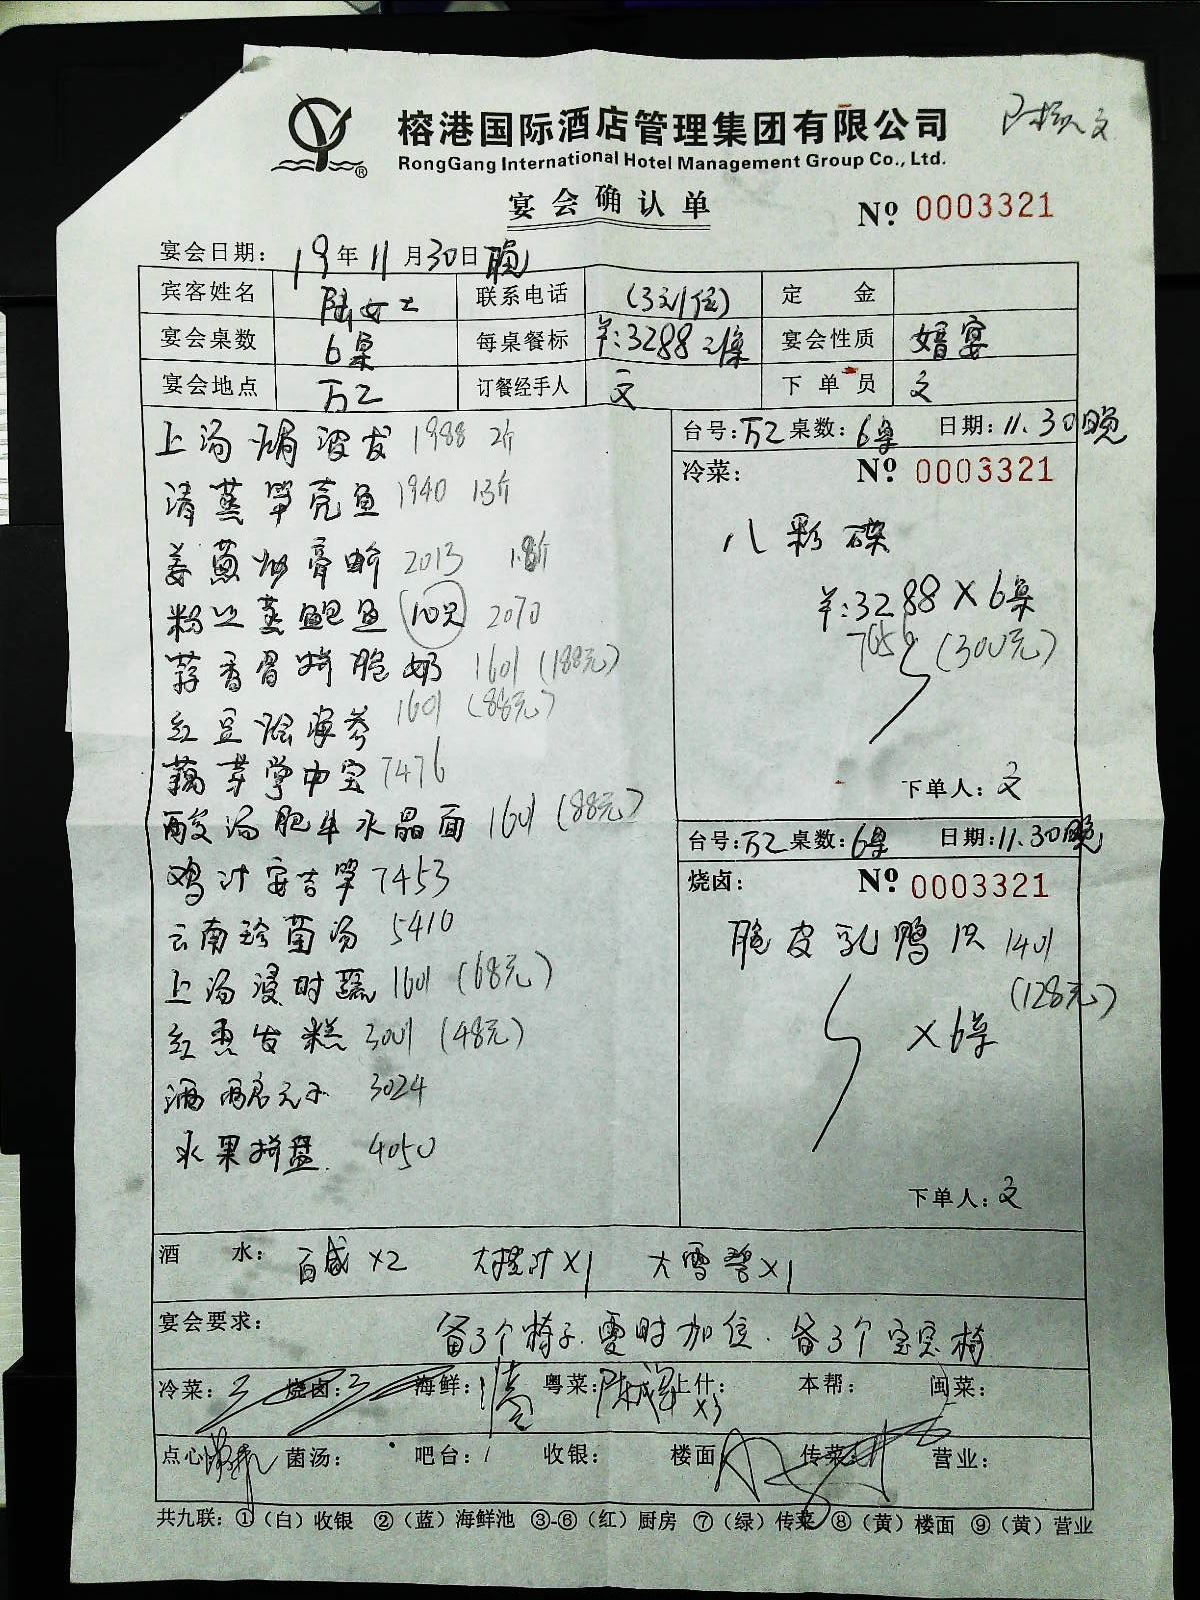 榕港国际酒店管理集团有限公司
RongGang International Hotel Management Group Co., Ltd.
宴会确认单
№ 0003321
宴会日期: 19年11月30日晚
宾客姓名 陆女士 联系电话 (3元/位) 定金
宴会桌数 6桌 每桌餐标 ¥:3288元/桌 宴会性质 婚宴
宴会地点 万乙 订餐经手人 文 下单员 文
上汤焗波龙 1988 2斤
清蒸笋壳鱼 1940 1.3斤
姜葱炒膏蟹 2013 1.8斤
粉丝蒸鲍鱼 10只 2070
蒜香骨拼脆奶 1601 (188元)
红豆烩海参 1601 (88元)
藕芽学中宝 7476
酸汤肥牛水晶面 1601 (88元)
鸡汁安吉笋 7453
云南珍菌汤 5410
上汤浸时蔬 1601 (68元)
红枣发糕 3001 (48元)
酒酿元子 3024
水果拼盘 4050
台号: 万乙 桌数: 6桌 日期: 11.30晚
冷菜: № 0003321
八彩碟
¥:3288×6桌
(300元)
下单人: 文
台号: 万乙 桌数: 6桌 日期: 11.30晚
烧卤: № 0003321
脆皮乳鸭1只 1401
(128元)
×6桌
下单人: 文
酒水: 百威×2 大橙汁×1 大雪碧×1
宴会要求: 备3个椅子.要时加位.备3个宝宝椅
冷菜: 烧卤: 海鲜: 粤菜: 上什: ×3 本帮: 闽菜:
点心 菌汤: 吧台: 收银: 楼面 传菜: 营业:
共九联: ①(白)收银 ②(蓝)海鲜池 ③-⑥(红)厨房 ⑦(绿)传菜 ⑧(黄)楼面 ⑨(黄)营业